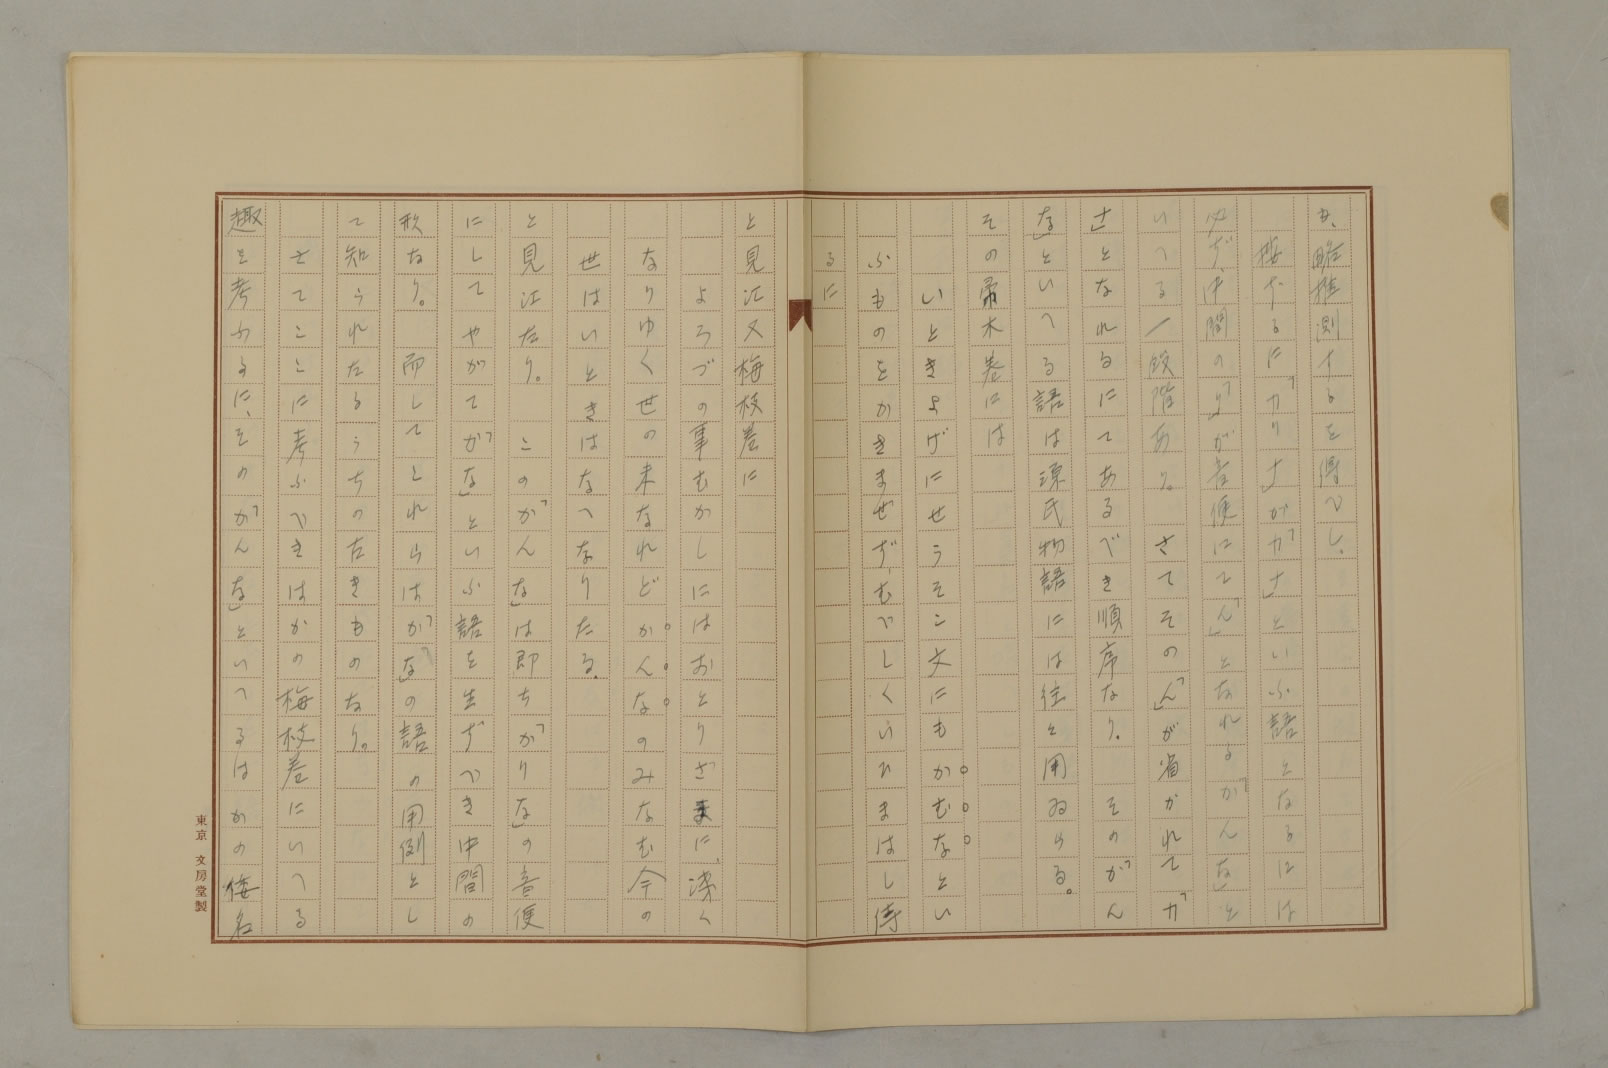 も、略推測するを得べし。
按ずるに「カリナ」が「カナ」といふ語となるには
必ず、中間の「り」が音便にて「ん」となれる「かんな」と
いへる一段階あり。さてその「ん」が省かれて「カ
ナ」となれるにてあるべき順序なり。そのがん
な」といへる語は源氏物語には往々用ゐらる。
その帚木巻には
いときよげにせうそこ文にもかむなとい
ふものをかきまぜず、むべしくいひまはし侍
るに
と見江又梅枝巻に
よろづの事むかしにはおとりざまに、浅く
なりゆく世の末なれどかんなのみなむ今の
世はいときはなへなりたる。
と見江たり。この「がんな」は即ち「かりな」の音便
にしてやがて「がな」といふ語を生ずべき中間の
形なり。而してこれらは「かな」の語の用例とし
て知られたるうちの古きものなり。
さてここに考ふべきはかの梅枝巻にいへる
趣を考ふるに、その「がんな」といへるはかの仮名
東京 文房堂製